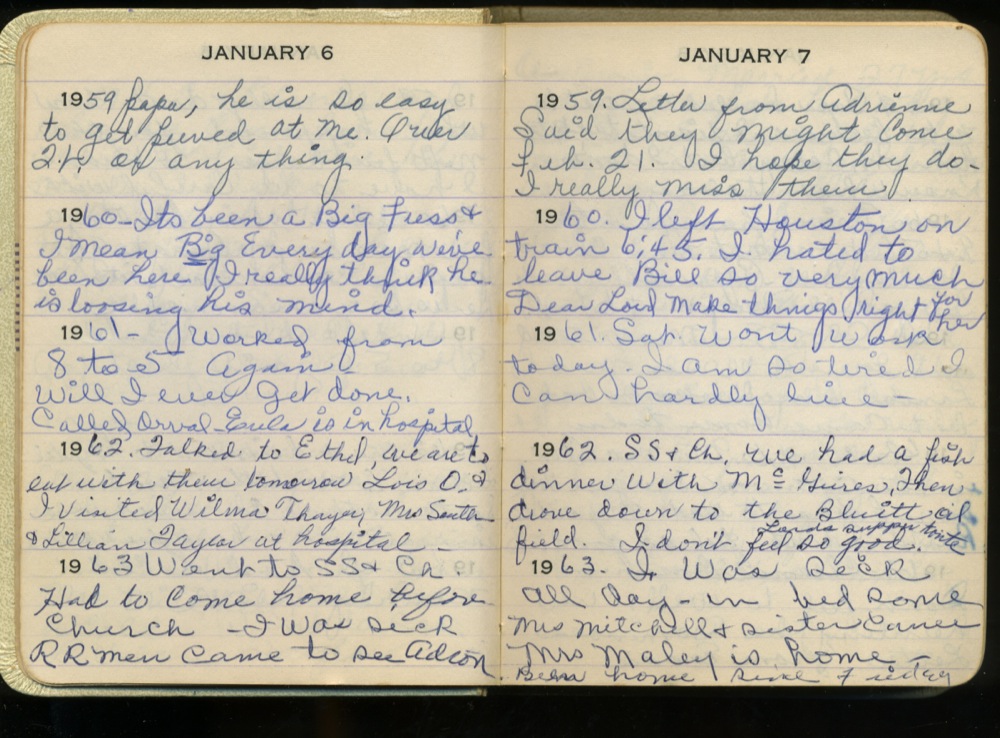 JANUARY 6
1959 papa, he is so easy
to get peved at me. Over
21, or any thing.
1960 - Its been a Big Fuss &
I mean Big Every day we've
been here. I really think he
is loosing his mind.
1961 - Worked from
8 to 5 Again -
Will I ever Get done.
Called Orval - Eula is in hospital
1962. Talked to Ethel, we are to
eat with them tomorrow Lois O. &
I visited Wilma Thayer, Mrs
& Lillian Taylor at hospital -
1963 Went to SS & Ch.
Had to Come home before
Church - I Was Seck
RR men Came to see
JANUARY 7
1959. Letter from Adrienne
Said they might Come
Feb. 21. I hope they do -
I really miss them.
1960. I left Houston on
train 6:45. I hated to
leave Bill so very much
Dear Lord Make things right for her
1961. Sat. Wont Work
today. I am so tired I
Can hardly live -
1962. SS & Ch. We had a fish
dinner With Mc Guires. Then
drove down to the Bluitt oil
field. I don't feel so good. Lords supper tonite
1963. I Was Seck
all day - in bed some
Mrs Mitchell & sister Came
Mrs Maley is home -
Been home since Friday